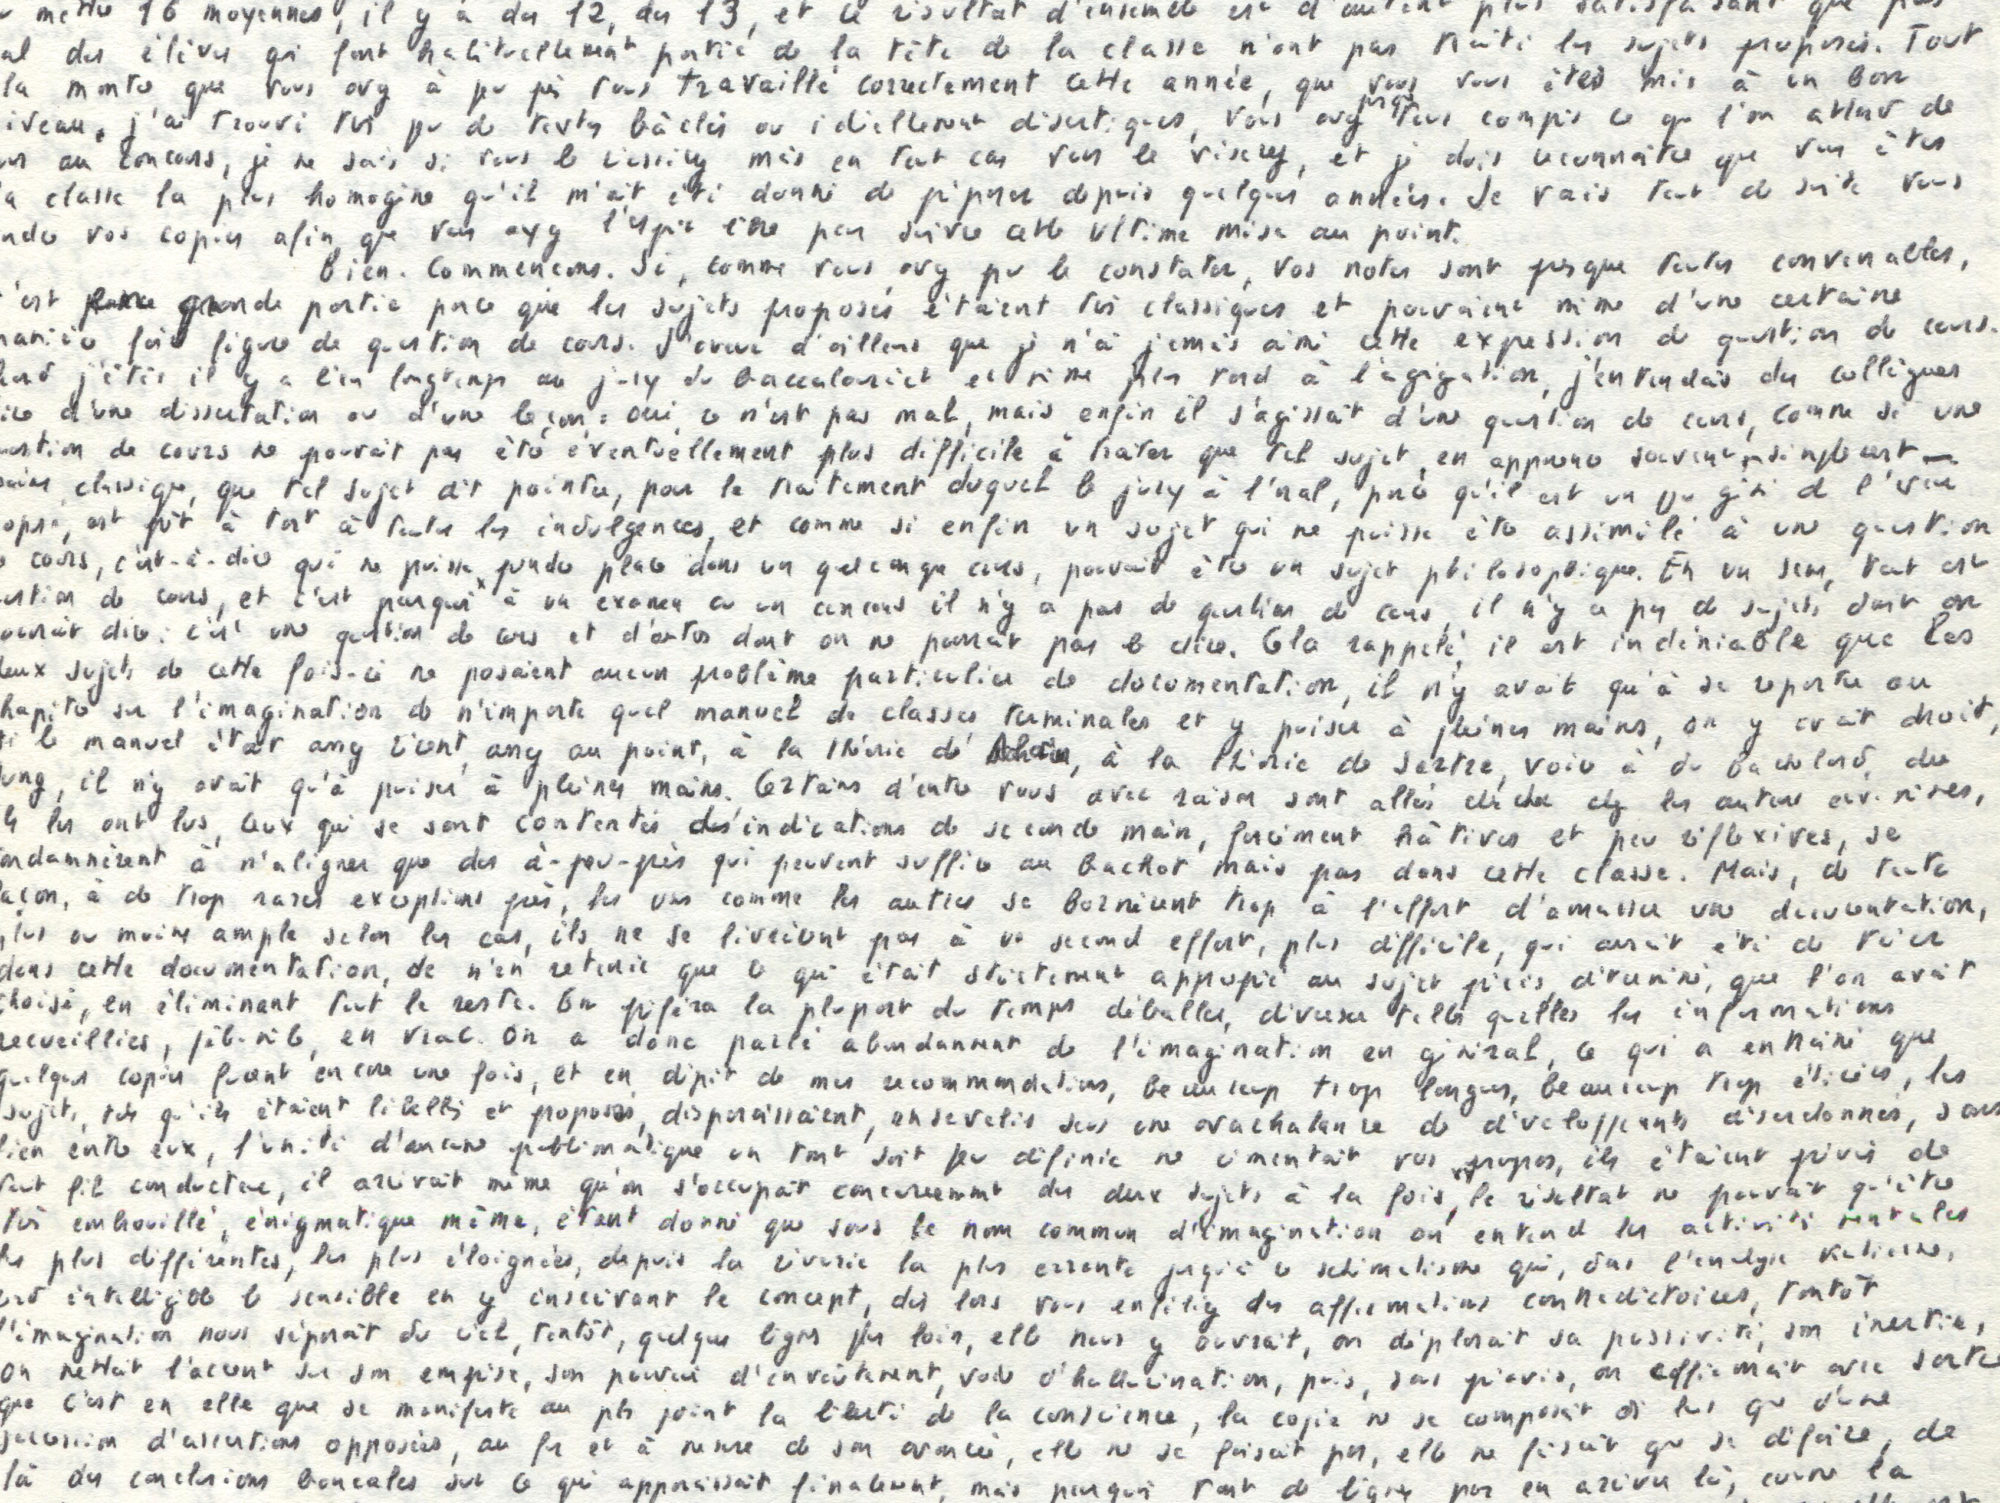 mettre 16 moyennes, il y a des 12, des 13, et le résultat d'ensemble est d'autant plus satisfaisant que pas
mal des élèves qui font habituellement partie de la tête de la classe n'ont pas traité les sujets proposés. Tout
la montre que vous avez à peu près tous travaillé correctement cette année, que vous vous êtes mis à un bon
niveau, j'ai trouvé très peu de textes bâclés ou réellement, vous avez presque tous compris ce que l'on attend de
vous au concours, je ne sais si vous le mais en tout cas vous le viserez, et je dois reconnaître que vous êtes
la classe la plus homogène qu'il m'ait été donné de préparer depuis quelques années. Je vais tout de suite vous
rendre vos copies afin que vous ayez l'esprit libre pour suivre cette ultime mise au point.
Bien. Commençons. Si, comme vous avez pu le constater, vos notes sont presque toutes convenables,
c'est grande partie parce que les sujets proposés étaient très classiques et pouvaient même d'une certaine
manière faire figure de question de cours. J'avoue d'ailleurs que je n'ai jamais aimé cette expression de question de cours.
Quand j'étais il y a bien longtemps au jury du baccalauréat et même plus tard à l'agrégation, j'entendais des collègues
dire d'une dissertation ou d'une leçon : oui, ce n'est pas mal, mais enfin il s'agissait d'une question de cours, comme si une
question de cours ne pouvait pas être éventuellement plus difficile à traiter que tel sujet, en apparence souvent simplement
moins classique, que tel sujet dit pointu, pour le traitement duquel le jury à l'oral, parce qu'il est un peu gêné de l'avoir
proposé, est prêt à tort à toutes les indulgences, et comme si enfin un sujet qui ne puisse être assimilé à une question
de cours, c'est-à-dire qui ne puisse prendre place dans un quelconque cours, pouvait être un sujet philosophique. En un sens, tout est
question de cours, et c'est pourquoi à un examen ou un concours il n'y a pas de question de cours, il n'y a pas de sujets dont on
pourrait dire : c'est une question de cours et d'autres dont on ne pourrait pas le dire. Cela rappelé, il est indéniable que les
deux sujets de cette fois-ci ne posaient aucun problème particulier de documentation, il n'y avait qu'à se reporter au
chapitre sur l'imagination de n'importe quel manuel de classes terminales et y puiser à pleines mains, on y avait droit,
si le manuel était assez récent, assez au point, à la théorie de, à la théorie de Sartre, voire à du Bachelard, du
Jung, il n'y avait qu'à puiser à pleines mains. Certains d'entre vous avec raison sont allés chercher chez les auteurs eux-mêmes,
ils les ont lus, ceux qui se sont contentés des indications de seconde main, forcément hâtives et peu réflexives, se
condamnèrent à n'aligner que des à-peu-près qui peuvent suffire au bachot mais pas dans cette classe. Mais, de toute
façon, à de trop rares exceptions près, les uns comme les autres se bornèrent trop à l'effort d'amasser une documentation,
plus ou moins ample selon les cas, ils ne se livrèrent pas à un second effort, plus difficile, qui aurait été de trier
dans cette documentation, de n'en retenir que ce qui était strictement approprié au sujet précis, déterminé, que l'on avait
choisi, en éliminant tout le reste. On préféra la plupart du temps déballer, déverser telles quelles les informations
recueillies, pêle-mêle, en vrac. On a donc parlé abondamment de l'imagination en général, ce qui a entraîné que
quelques copies furent encore une fois, et en dépit de mes recommandations, beaucoup trop longues, beaucoup trop étirées, les
sujets, tels qu'ils étaient libellés et proposés, disparaissaient, ensevelis sous une avachalanze de développements désordonnés, sans
lien entre eux, l'unité d'aucune problématique un tant soit peu définie ne cimentait vos propos, ils étaient privés de
tout fil conducteur, il arrivait même qu'on s'occupât concurremment des deux sujets à la fois, le résultat ne pouvait qu'être
très embrouillé, énigmatique même, étant donné que sous le nom commun d'imagination on entend les activités mentales
les plus différentes, les plus éloignées, depuis la rêverie la plus errante jusqu'à ce schématisme qui, dans l'analyse kantienne,
rend intelligible le sensible en y inscrivant le concept, dès lors vous enfiliez des affirmations contradictoires, tantôt
l'imagination nous séparait du réel, tantôt, quelques lignes plus loin, elle nous y ouvrait, on déplorait sa passivité, son inertie,
on mettait l'accent sur son emprise, son pouvoir d'envoûtement, voire d'hallucination, puis, sans préavis, on affirmait avec Sartre
que c'est en elle que se manifeste au plus point la liberté de la conscience, la copie ne se composait dès lors que d'une
succession d'assertions opposées, au fur et à mesure de son avancée, elle ne se faisait pas, elle ne faisait que se défaire, de
là des conclusions bancales sur ce qui apparaissait finalement, mais pourquoi tant de lignes pour en arriver là, comme la